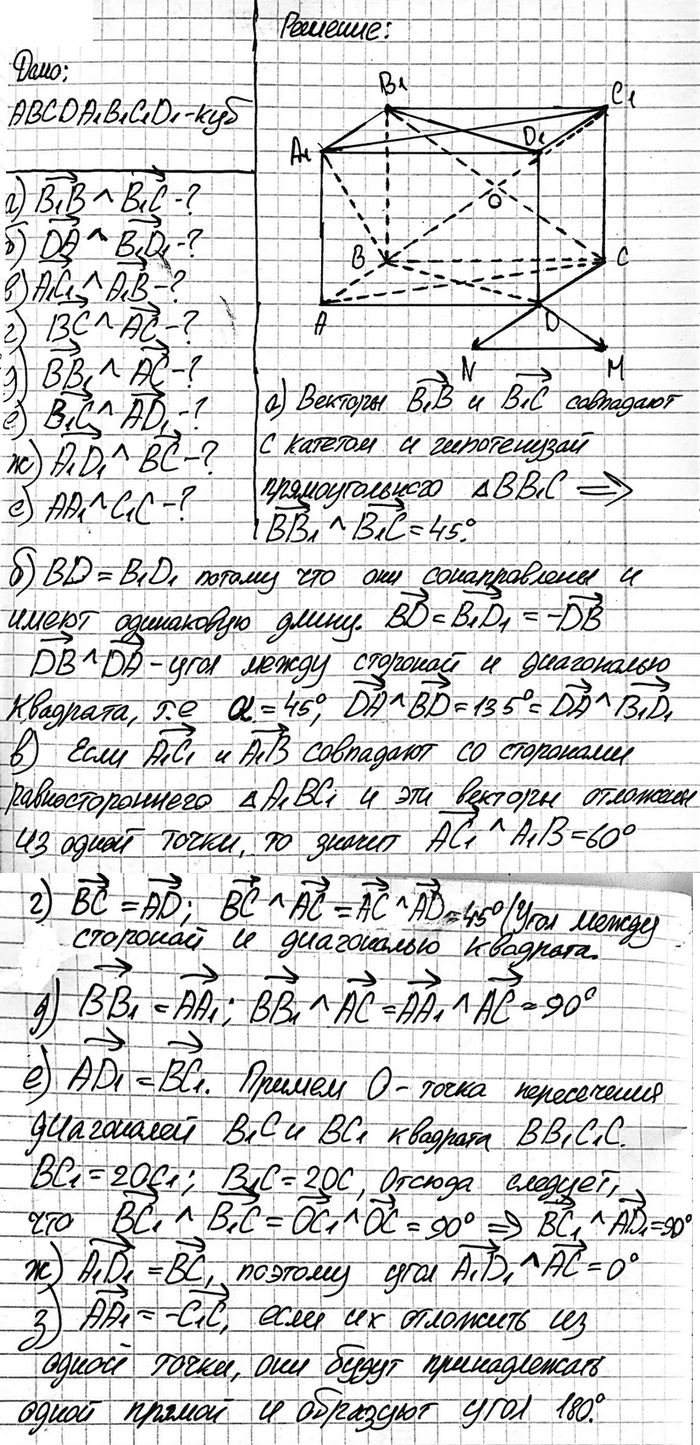 Решение:
Дано:
ABCDA₁B₁C₁D₁-куб
а) B₁B ^ B₁C-?
б) DA ^ B₁D₁-?
в) A₁C₁ ^ A₁B-?
г) BC ^ AC-?
д) BB₁ ^ AC-?
е) B₁C ^ AD₁-?
ж) A₁D₁ ^ BC-?
е) AA₁ ^ C₁C-?
B₁
C₁
A₁
D₁
O
B
C
A
D
N
M
а) Векторы B₁B и B₁C совпадают
с катетом и гипотенузай
прямоугольного △BB₁C ⟹
BB₁ ^ B₁C = 45°.
б) BD = B₁D₁ потому что они сонаправлены и
имеют одинаковую длину. BD = B₁D₁ = -DB
DB ^ DA - угол между стороной и диагональю
квадрата, т.е α = 45°; DA ^ BD = 135° = DA ^ B₁D₁
в) Если A₁C₁ и A₁B совпадают со сторонами
равностороннего △A₁BC₁ и эти векторы отложены
из одной точки, то значит AC₁ ^ A₁B = 60°
г) BC = AD; BC ^ AC = AC ^ AD = 45° (Угол между
стороной и диагональю квадрата.
д) BB₁ = AA₁; BB₁ ^ AC = AA₁ ^ AC = 90°
е) AD₁ = BC₁. Примем O - точка пересечения
диагоналей B₁C и BC₁ квадрата BB₁C₁C.
BC₁ = 2OC₁; B₁C = 2OC, Отсюда следует,
что BC₁ ^ B₁C = OC₁ ^ OC = 90° ⇒ BC₁ ^ AD₁ = 90°
ж) A₁D₁ = BC, поэтому угол A₁D₁ ^ AC = 0°
з) AA₁ = -C₁C, если их отложить из
одной точки, они будут принадлежать
одной прямой и образуют угол 180°.